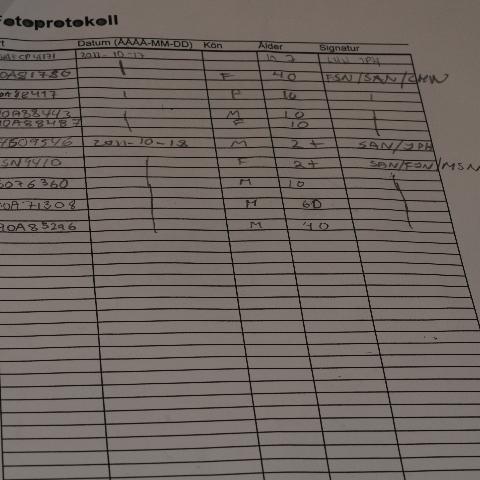 Fotoprotokoll
Datum (ÅÅÅÅ-MM-DD) Kön Ålder Signatur
2011-10-17
0A81786 F 40 FSN/SAN/CHW
F 10
0A88443 M 10
0A88487 F 10
4509546 2011-10-18 M 2+ SAN/JPH
SN9410 F 2+ SAN/FSN/MSN
5076360 M 10
0A71308 M 6D
90A85296 M 40